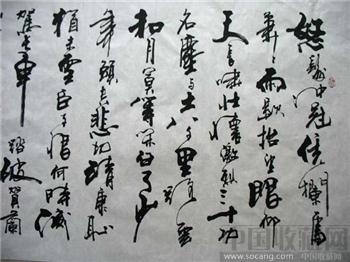 怒髮沖冠憑闌處
瀟瀟雨歇抬望眼仰
天長嘯壯懷激烈三十功
名塵與土八千里路雲
和月莫等閒白了少
年頭空悲切靖康恥
猶未雪臣子恨何時滅
駕長車踏破賀蘭
中国收藏网
www.socang.com